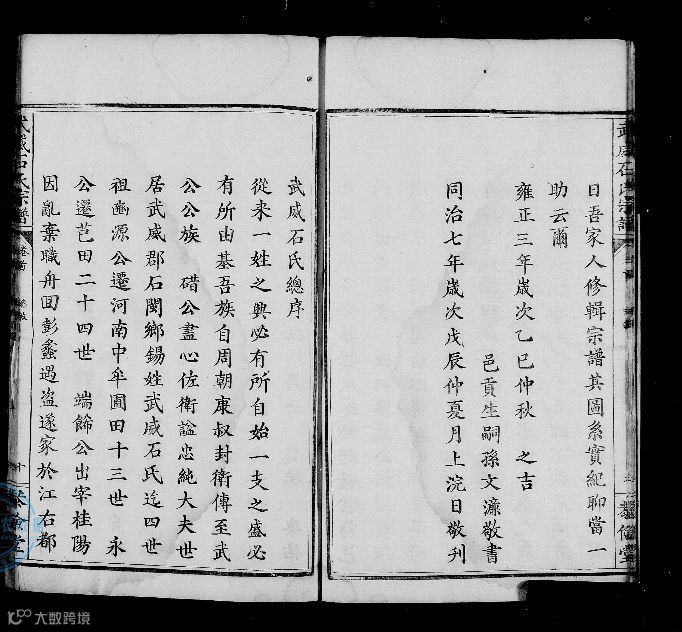 武威石氏宗譜
日吾家人修輯宗譜其圖系實紀聊當一
助云爾
雍正三年歲次乙巳仲秋 之吉
邑貢生嗣孫文濂敬書
同治七年歲次戊辰仲夏月上浣日敬刊
武威石氏總序
從來一姓之興必有所自始一支之盛必
有所由基吾族自周朝康叔封衛傳至武
公公族 碏公盡心佐衛諡忠純大夫世
居武威郡石閔鄉錫姓武威石氏迄四世
祖幽源公遷河南中牟圃田十三世 永
公遷芑田二十四世 端餙公出宰桂陽
因亂棄職舟回彭蠡遇盜遂家於江右都
武威石氏宗譜
卷首
十
大数跨境